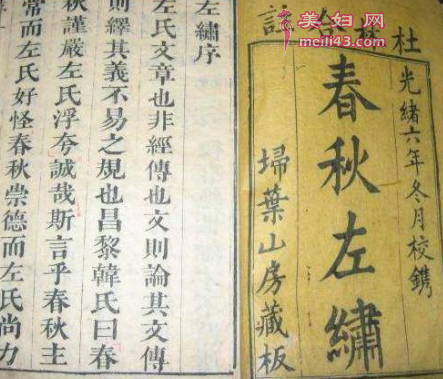 美妇网
meili43.com
杜林合註
光緒六年冬月校鐫
春秋左繡
埽葉山房藏板
左繡序
左氏文章也非經傳也文則論其文傳
則繹其義不易之規也昌黎韓氏曰春
秋謹嚴左氏浮夸誠哉斯言乎春秋主
常而左氏好怪春秋崇德而左氏尚力